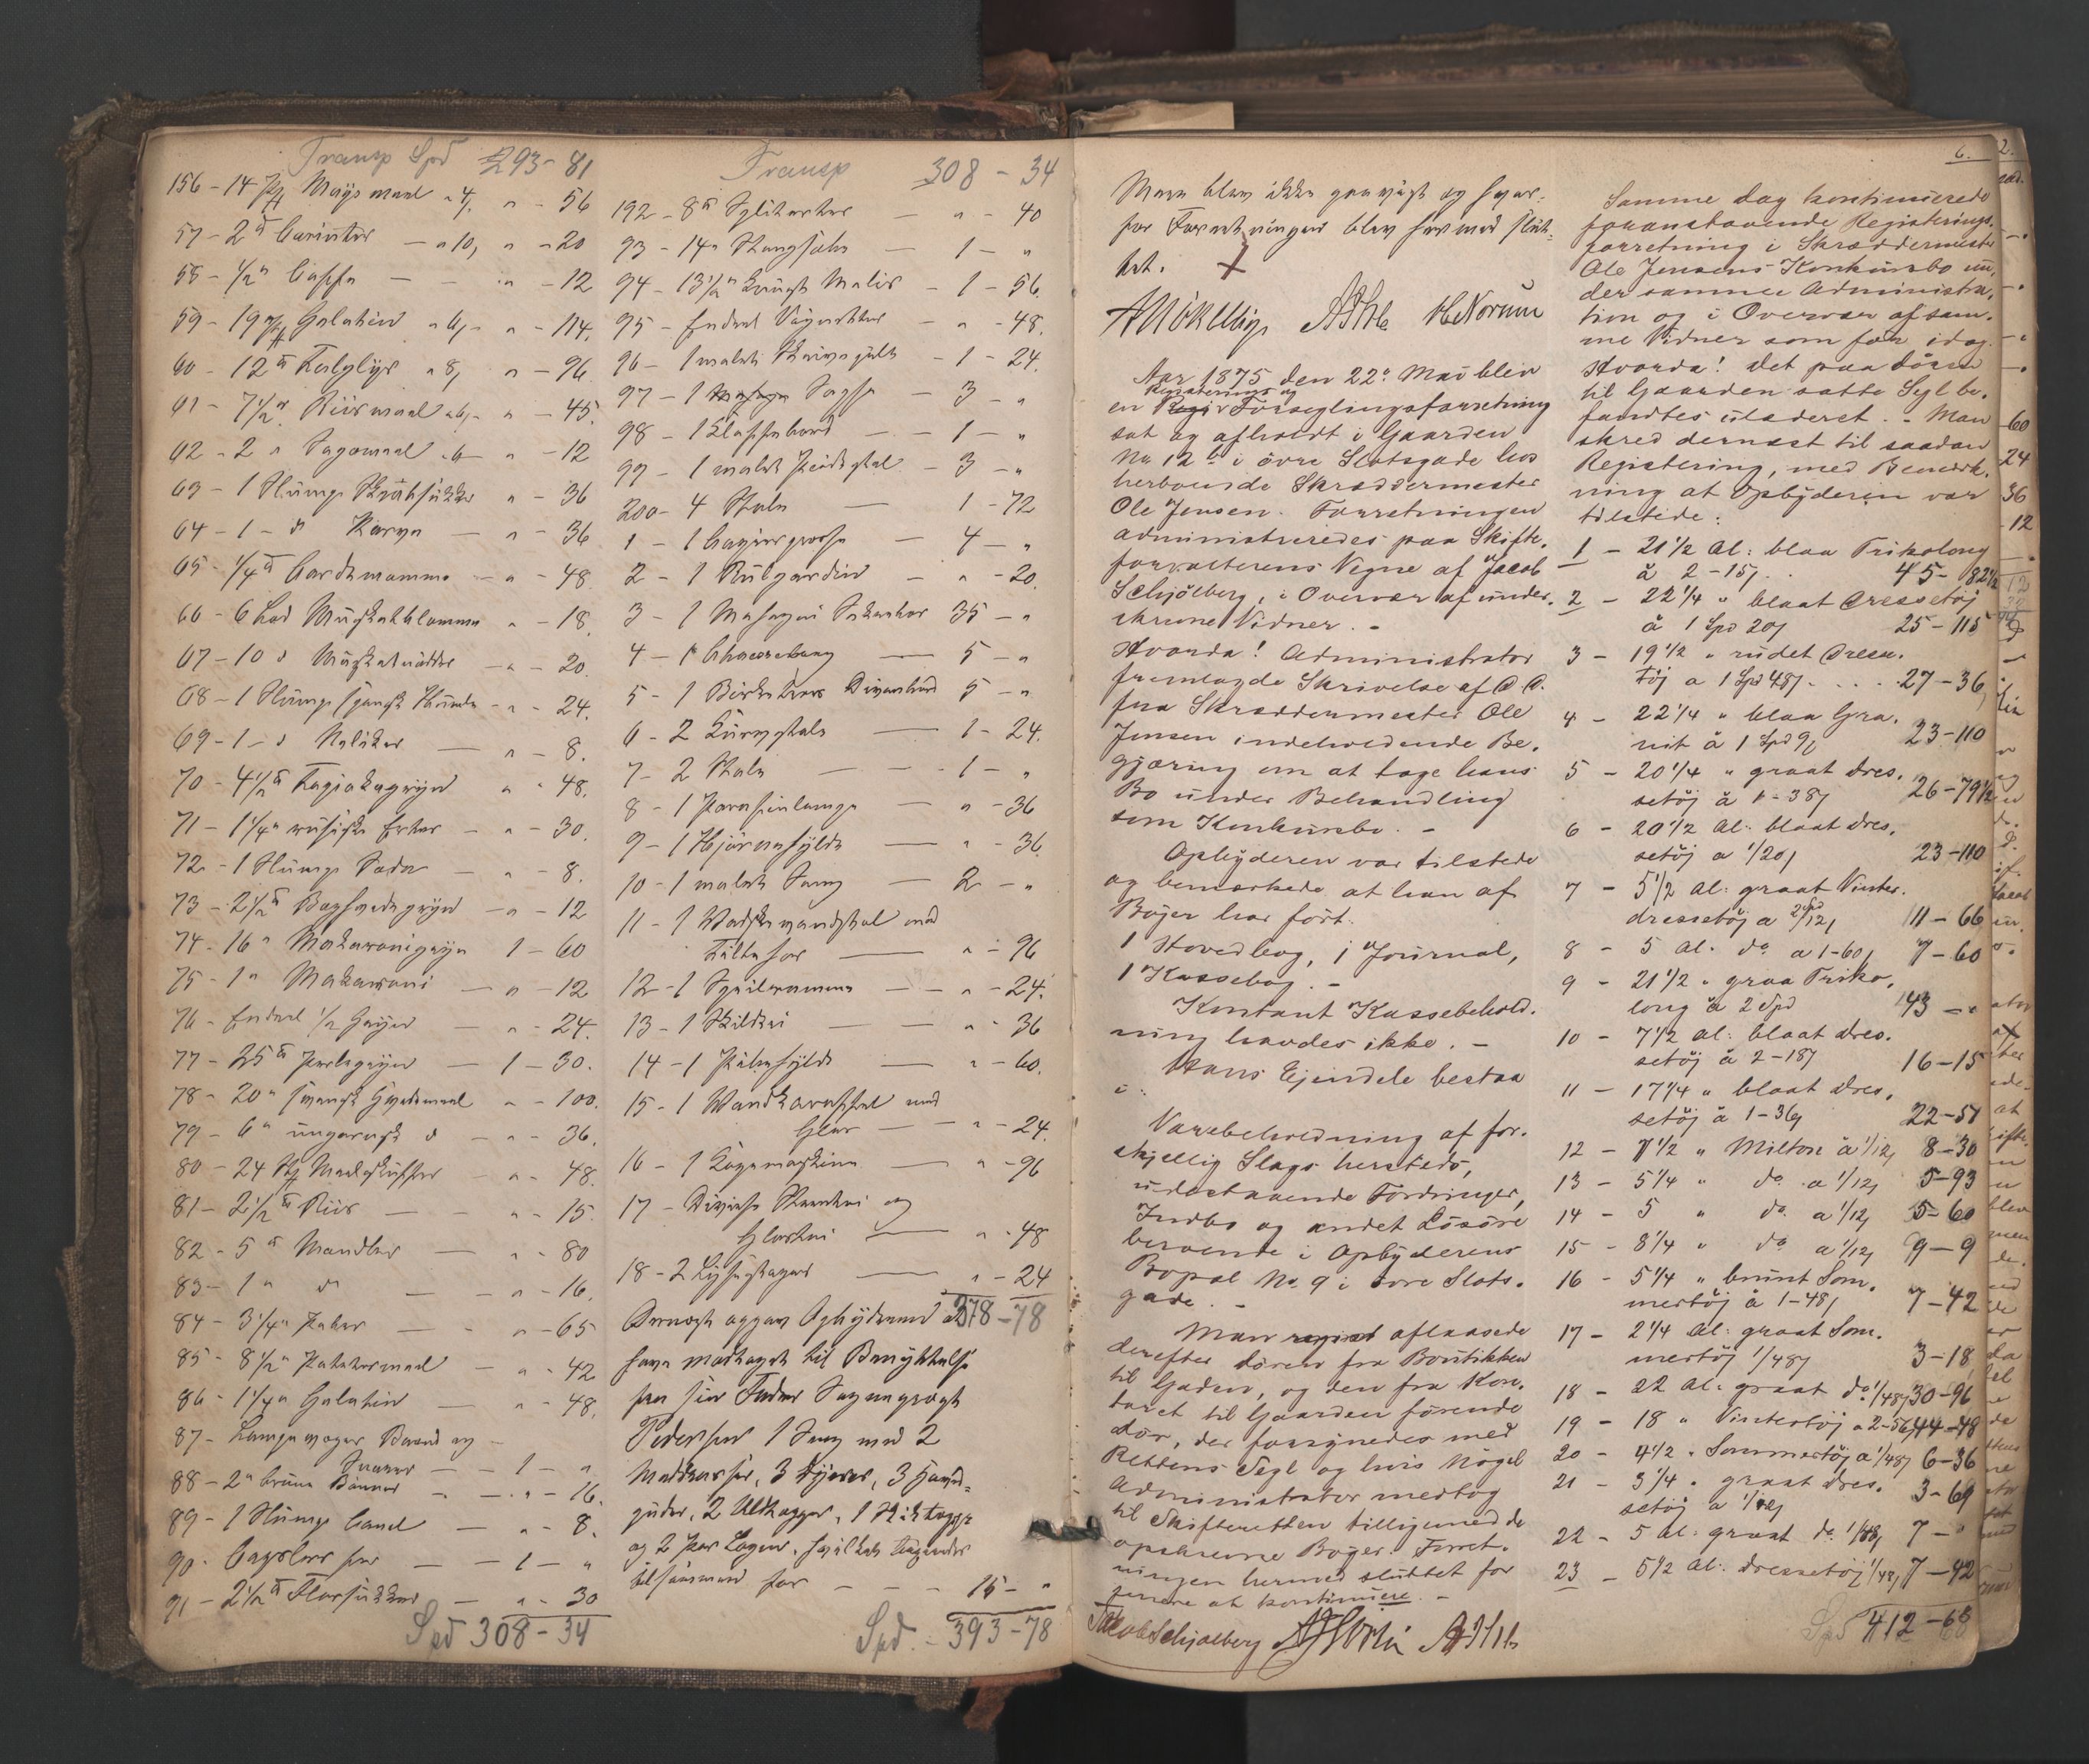 Transp Spd 293-81
156 - 14 Maysmeel a 4, " - 56
57 - 2 ℔ Corinter - a 10, " - 20
58 - 1/2 " Caffe - " - 12
59 - 19 Gelatin a 6, " - 114.
60 - 12 ℔ Talglys a 8, " - 96
61 - 7 1/2 " Riismeel a 6, " - 45.
62 - 2 " Sagomeel a 6 " - 12
63 - 1 Slump " - 36
64 - 1 - d Karve - " - 36
65 - 1/4 ℔ Cardemomme - " - 48
66 - 6 Lod Muskatblomme " - 18.
67 - 10 d Muskatnødder - " - 20.
68 - 1 Slump spansk - " - 24.
69 - 1 - d Nelliker - " - 8.
70 - 4 1/2 ℔ Tapiokagryn " - 48.
71 - 1 1/4 " russiske Erter - " - 30.
72 - 1 Slump Soda - " - 8.
73 - 2 1/2 ℔ Boghvedegryn - " - 12
74 - 16 " Makaronigryn 1 - 60
75 - 1 " Makaroni - " - 12
76 - Endeel 1/2 Gryn - " - 24.
77 - 25 ℔ Perlegryn - 1 - 30.
78 - 20 " svensk Hvedemeel " - 100.
79 - 6 " ungarsk d - " - 36.
80 - 24 - " - 48.
81 - 2 1/2 ℔ Riis - " - 15.
82 - 5 ℔ Mandler - " - 80
83 - 1 " d - " - 16.
84 - 3 1/4 " Peber - " - 65
85 - 8 1/2 " Potetesmeel - " - 42
86 - 1 1/4 " Gelatin - " - 48.
87 - Lampeveger Baand og
Snorer - 1 - "
88 - 2 " brune Bønner - " - 16.
89 - 1 Slump Caneel - " - 8.
90 - - 1 - "
91 - 2 1/2 ℔ Florsukker - " - 30
Spd 308 - 34
Transp 308 - 34
192 - 8 ℔ - " - 40
93 - 14 " Stangsæbe - 1 - "
94 - 13 1/2 " - 1 - 56.
95 - Endeel - " - 48.
96 - 1 malet - 1 - 24.
97 - 1 Sopha - 3 - "
98 - 1 Klappebord - 1 - "
99 - 1 malet - 3 - "
200 - 4 Stole - 1 - 72
1 - 1 - 4 - "
2 - 1 Rulgardin - " - 20.
3 - 1 Mahogni 35 - "
4 - 1 - 5 - "
5 - 1 Birketræes 5 - "
6 - 2 Kurvstole - 1 - 24.
7 - 2 Stole - 1 - "
8 - 1 Parafinlampe - " - 36
9 - 1 Hjørnehylde - " - 36.
10 - 1 malet Seng - 2 - "
11 - 1 Vadskevandstel med
Tilbehør - " - 96
12 - 1 Speilramme - " - 24.
13 - 1 Skilderi - " - 36
14 - 1 - " - 60.
15 - 1 Vandkaraffel med
Glas - " - 24.
16 - 1 Kogemaskine - " - 96
17 - Diverse Stentøi og
Glastøi - " - 48
18 - 2 Lysestager - " - 24
Dernæst opgav Opbyderen at 378 - 78
have modtaget til Benyttelse
fra sin Fader
Pedersen 1 Seng med 2
Madrasser, 3 Dyner, 3 Hoved-
puder, 2 Uldtepper, 1
og 2 Par Lagen, hvilket
tilsammen for - 15 - "
Spd. - 393 - 78
6.
Mere blev ikke paavist og hvor-
for Forretningen blev hermed slut-
tet.
H Norum
Aar 1875 den 22de Mai blev
Registrerings og
en Forseglingsforretning
sat og afholdt i Gaarden
No 12 b i øvre Slotsgade hos
herboende Skræddermester
Ole Jensen. Forretningen
administreredes paa Skifte-
forvalterens Vegne af Jacob
Schjølberg, i Overvær af under-
skrevne Vidner. -
Hvorda! Administrator
fremlagde Skrivelse af D. D.
fra Skræddermester Ole
Jensen indeholdende Be-
gjæring om at tage hans
Bo under Behandling
som Konkursbo. -
Opbyderen var tilstede
og bemærkede at han af
Bøger har ført:
1 Hovedbog, 1 Journal,
1 Kassebog. -
Kontant Kassebehold-
ning havdes ikke. -
Hans Ejendele bestaa
i:
Varebeholdning af for-
skjellig Slags hersteds,
udestaaende Fordringer,
Indbo og andet Løsøre
beroende i Opbyderens
Bopæl No. 9 i øvre Slots-
gade. -
Man aflaasede
derefter døren fra Boutikken
til Gaden, og den fra Kon-
toret til Gaarden førende
dør, der forsynedes med
Rettens Segl og hvis Nøgel
Administrator medtog
til Skifteretten tilligemed de
opskrevne Bøger. Forret-
ningen hermed sluttet for
senere at kontinuere. -
Jacob Schjølberg
Samme dag kontinuerede
foranstaaende Registerings-
forretning i Skræddermester
Ole Jensens Konkursbo un-
der samme Administra-
tion og i Overvær af sam-
me Vidner som før idag.
Hvorda! det paa døren
til Gaarden satte Segl be-
fandtes ulæderet. - Man
skred dernæst til saadan
Registering, med Bemærk-
ning at Opbyderen var
tilstede:
1 - 21 1/2 Al: blaa Trikolong
à 2 - 15, 45 - 82 1/2
2 - 22 1/4 " blaat Dressetøj
à 1 Spd 20, 25 - 115
3 - 19 1/2 " rudet Dres-
tøj a 1 Spd 48, 27 - 36,
4 - 22 1/4 " blaa Gra-
nit à 1 Spd 9, 23 - 110
5 - 20 1/4 " graat dres-
setøj à 1 - 38, 26 - 79 1/2
6 - 20 1/2 Al: blaat dres-
setøj a 1/20, 23 - 110
7 - 5 1/2 Al: graat Vinter-
dressetøj a 2 Spd 12, 11 - 66
8 - 5 Al: do a 1 - 60, 7 - 60
9 - 21 1/2 " graa Triko-
long à 2 Spd 43 - "
10 - 7 1/2 al: blaat dres-
setøj à 2 - 18, 16 - 15
11 - 17 1/4 " blaat dres-
setøj à 1 - 36, 22 - 51
12 - 7 1/2 " Milton à 1/12, 8 - 30
13 - 5 1/4 " do a 1/12, 5 - 93
14 - 5 " do a 1/12, 5 - 60
15 - 8 1/4 " do a 1/12, 9 - 9
16 - 5 1/4 " brunt Som-
mertøj à 1 - 48, 7 - 42
17 - 2 1/4 Al: graat Som-
mertøj 1/48, 3 - 18
18 - 22 Al: graat do 1/48, 30 - 96
19 - 18 " Vintertøj a 2 - 56, 44 - 48
20 - 4 1/2 " Sommertøj a 1/48, 6 - 36
21 - 3 1/4 " graat dres-
setøj a 3 - 69
22 - 5 Al: graat do 1/48, 7 - "
23 - 5 1/2 Al: dressetøj 1/42, 7 - 42
Spd 412 - 68